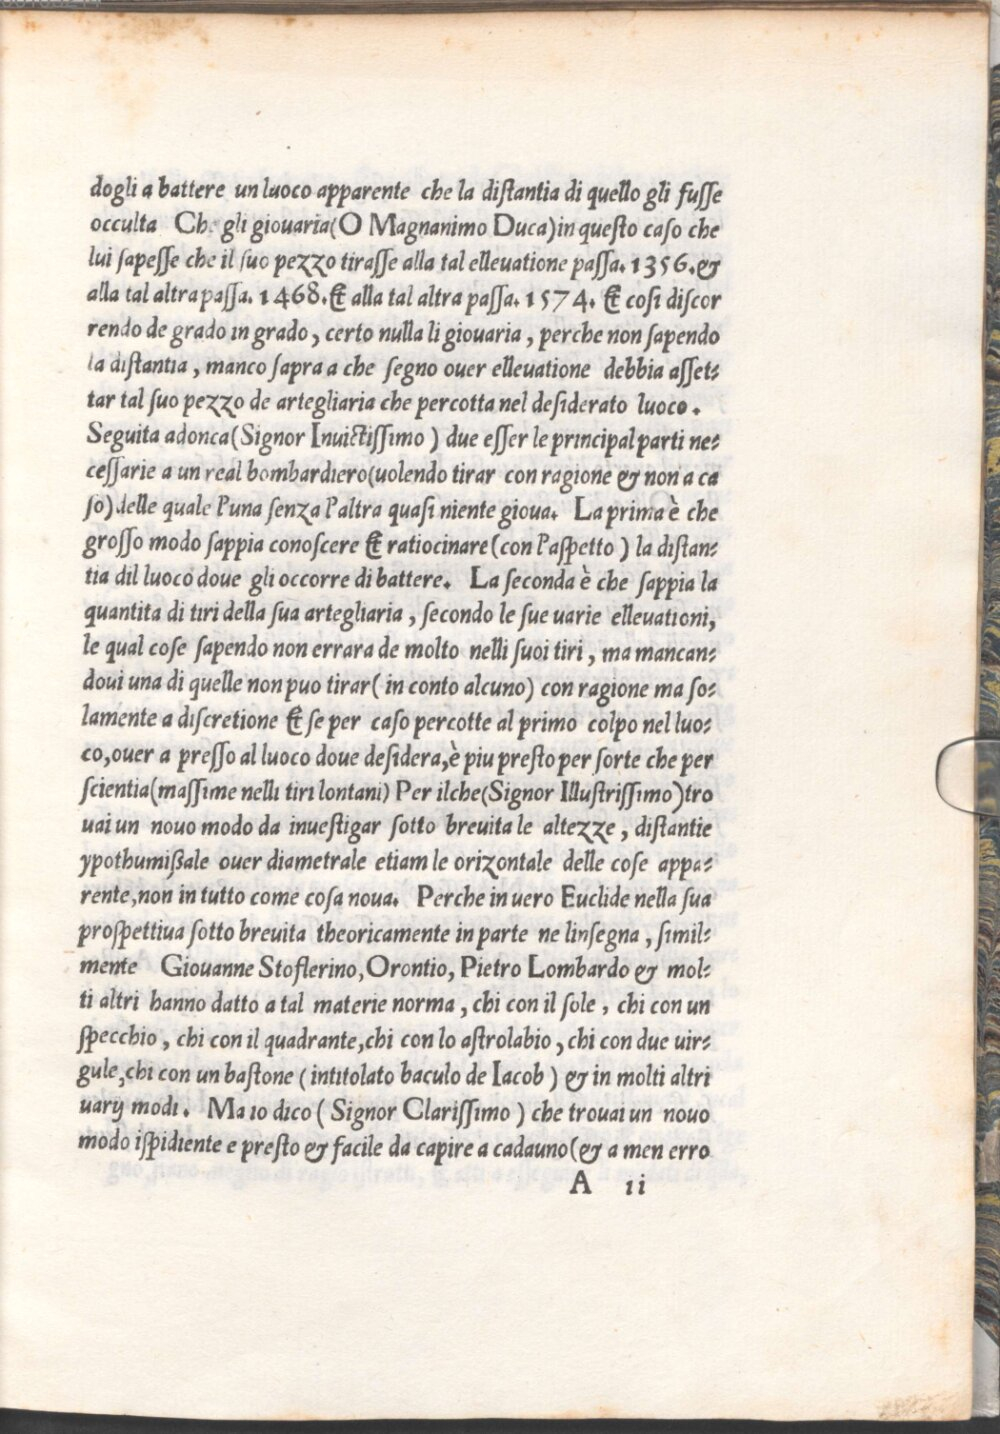 dogli a battere un luoco apparente che la distantia di quello gli fusse
occulta Che gli giouaria(O Magnanimo Duca)in questo caso che
lui sapesse che il suo pezzo tirasse alla tal elleuatione passa. 1356. &
alla tal altra passa. 1468. Et alla tal altra passa. 1574. Et cosi discor
rendo de grado in grado, certo nulla li giouaria, perche non sapendo
la distantia, manco sapra a che segno ouer elleuatione debbia asset:
tar tal suo pezzo de artegliaria che percotta nel desiderato luoco.
Seguita adonca(Signor Inuictissimo) due esser le principal parti ne:
cessarie a un real bombardiero(uolendo tirar con ragione & non a ca
so)delle quale l'una senza l'altra quasi niente gioua. La prima è che
grosso modo sappia conoscere Et ratiocinare(con l'aspetto) la distan:
tia dil luoco doue gli occorre di battere. La seconda è che sappia la
quantita di tiri della sua artegliaria, secondo le sue uarie elleuationi,
le qual cose sapendo non errara de molto nelli suoi tiri, ma mancan:
doui una di quelle non puo tirar(in conto alcuno) con ragione ma so:
lamente a discretione Et se per caso percotte al primo colpo nel luo:
co, ouer a presso al luoco doue desidera, è piu presto per sorte che per
scientia(massime nelli tiri lontani) Per ilche(Signor Illustrissimo)tro
uai un nouo modo da inuestigar sotto breuita le altezze, distantie
ypothumißale ouer diametrale etiam le orizontale delle cose appa:
rente, non in tutto come cosa noua. Perche in uero Euclide nella sua
prospettiua sotto breuita theoricamente in parte ne linsegna, simil:
mente Giouanne Stoflerino, Orontio, Pietro Lombardo & mol:
ti altri hanno datto a tal materie norma, chi con il sole, chi con un
specchio, chi con il quadrante, chi con lo astrolabio, chi con due uir:
gule, chi con un bastone (intitolato baculo de Iacob) & in molti altri
uarij modi. Ma io dico (Signor Clarissimo) che trouai un nouo
modo ispidiente e presto & facile da capire a cadauno(& a men erro
A ii